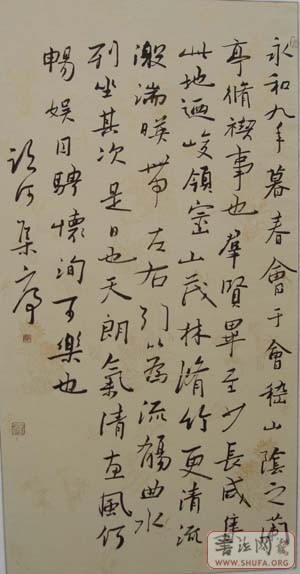 永和九年暮春會于會稽山陰之蘭
亭脩禊事也羣賢畢至少長咸集
此地迺峻領崇山茂林脩竹更清流
激湍暎帶左右引以為流觴曲水
列坐其次是日也天朗氣清惠風和
暢娛目騁懷洵可樂也
臨河集序
书法网
WWW.SHUFA.ORG